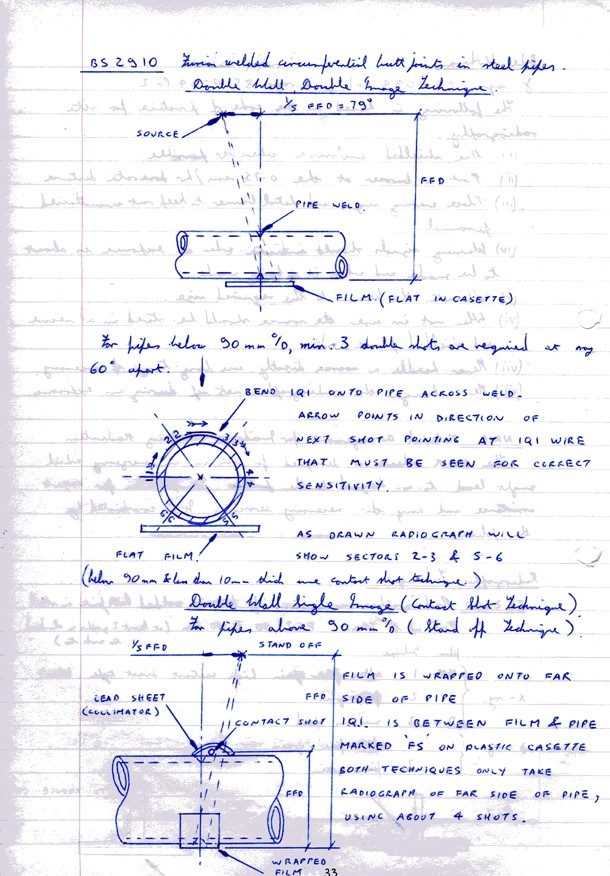 BS 2910 Fusion welded circumferential butt joints in steel pipes.
Double Wall, Double Image Technique.
1/5 FFD = 79°
SOURCE
FFD
PIPE WELD.
FILM. (FLAT IN CASETTE)
For pipes below 90 mm O/D, min. 3 double shots are required at say
60° apart.
BEND IQI ONTO PIPE ACROSS WELD.
ARROW POINTS IN DIRECTION OF
NEXT SHOT POINTING AT IQI WIRE
THAT MUST BE SEEN FOR CORRECT
SENSITIVITY.
1 2 2 3 3 4 4 5 5 6 6
AS DRAWN RADIOGRAPH WILL
FLAT FILM.
SHOW SECTORS 2-3 & 5-6
(below 90 mm & less than 10mm thick use contact shot technique.)
Double Wall Single Image (Contact Shot Technique).
For pipes above 90 mm O/D (Stand off Technique)
1/5 FFD
STAND OFF
FFD
LEAD SHEET
(COLLIMATOR)
CONTACT SHOT
FFD
FILM IS WRAPPED ONTO FAR
SIDE OF PIPE
IQI. IS BETWEEN FILM & PIPE
MARKED 'FS' ON PLASTIC CASETTE
BOTH TECHNIQUES ONLY TAKE
RADIOGRAPH OF FAR SIDE OF PIPE,
USING ABOUT 4 SHOTS.
WRAPPED
FILM
33